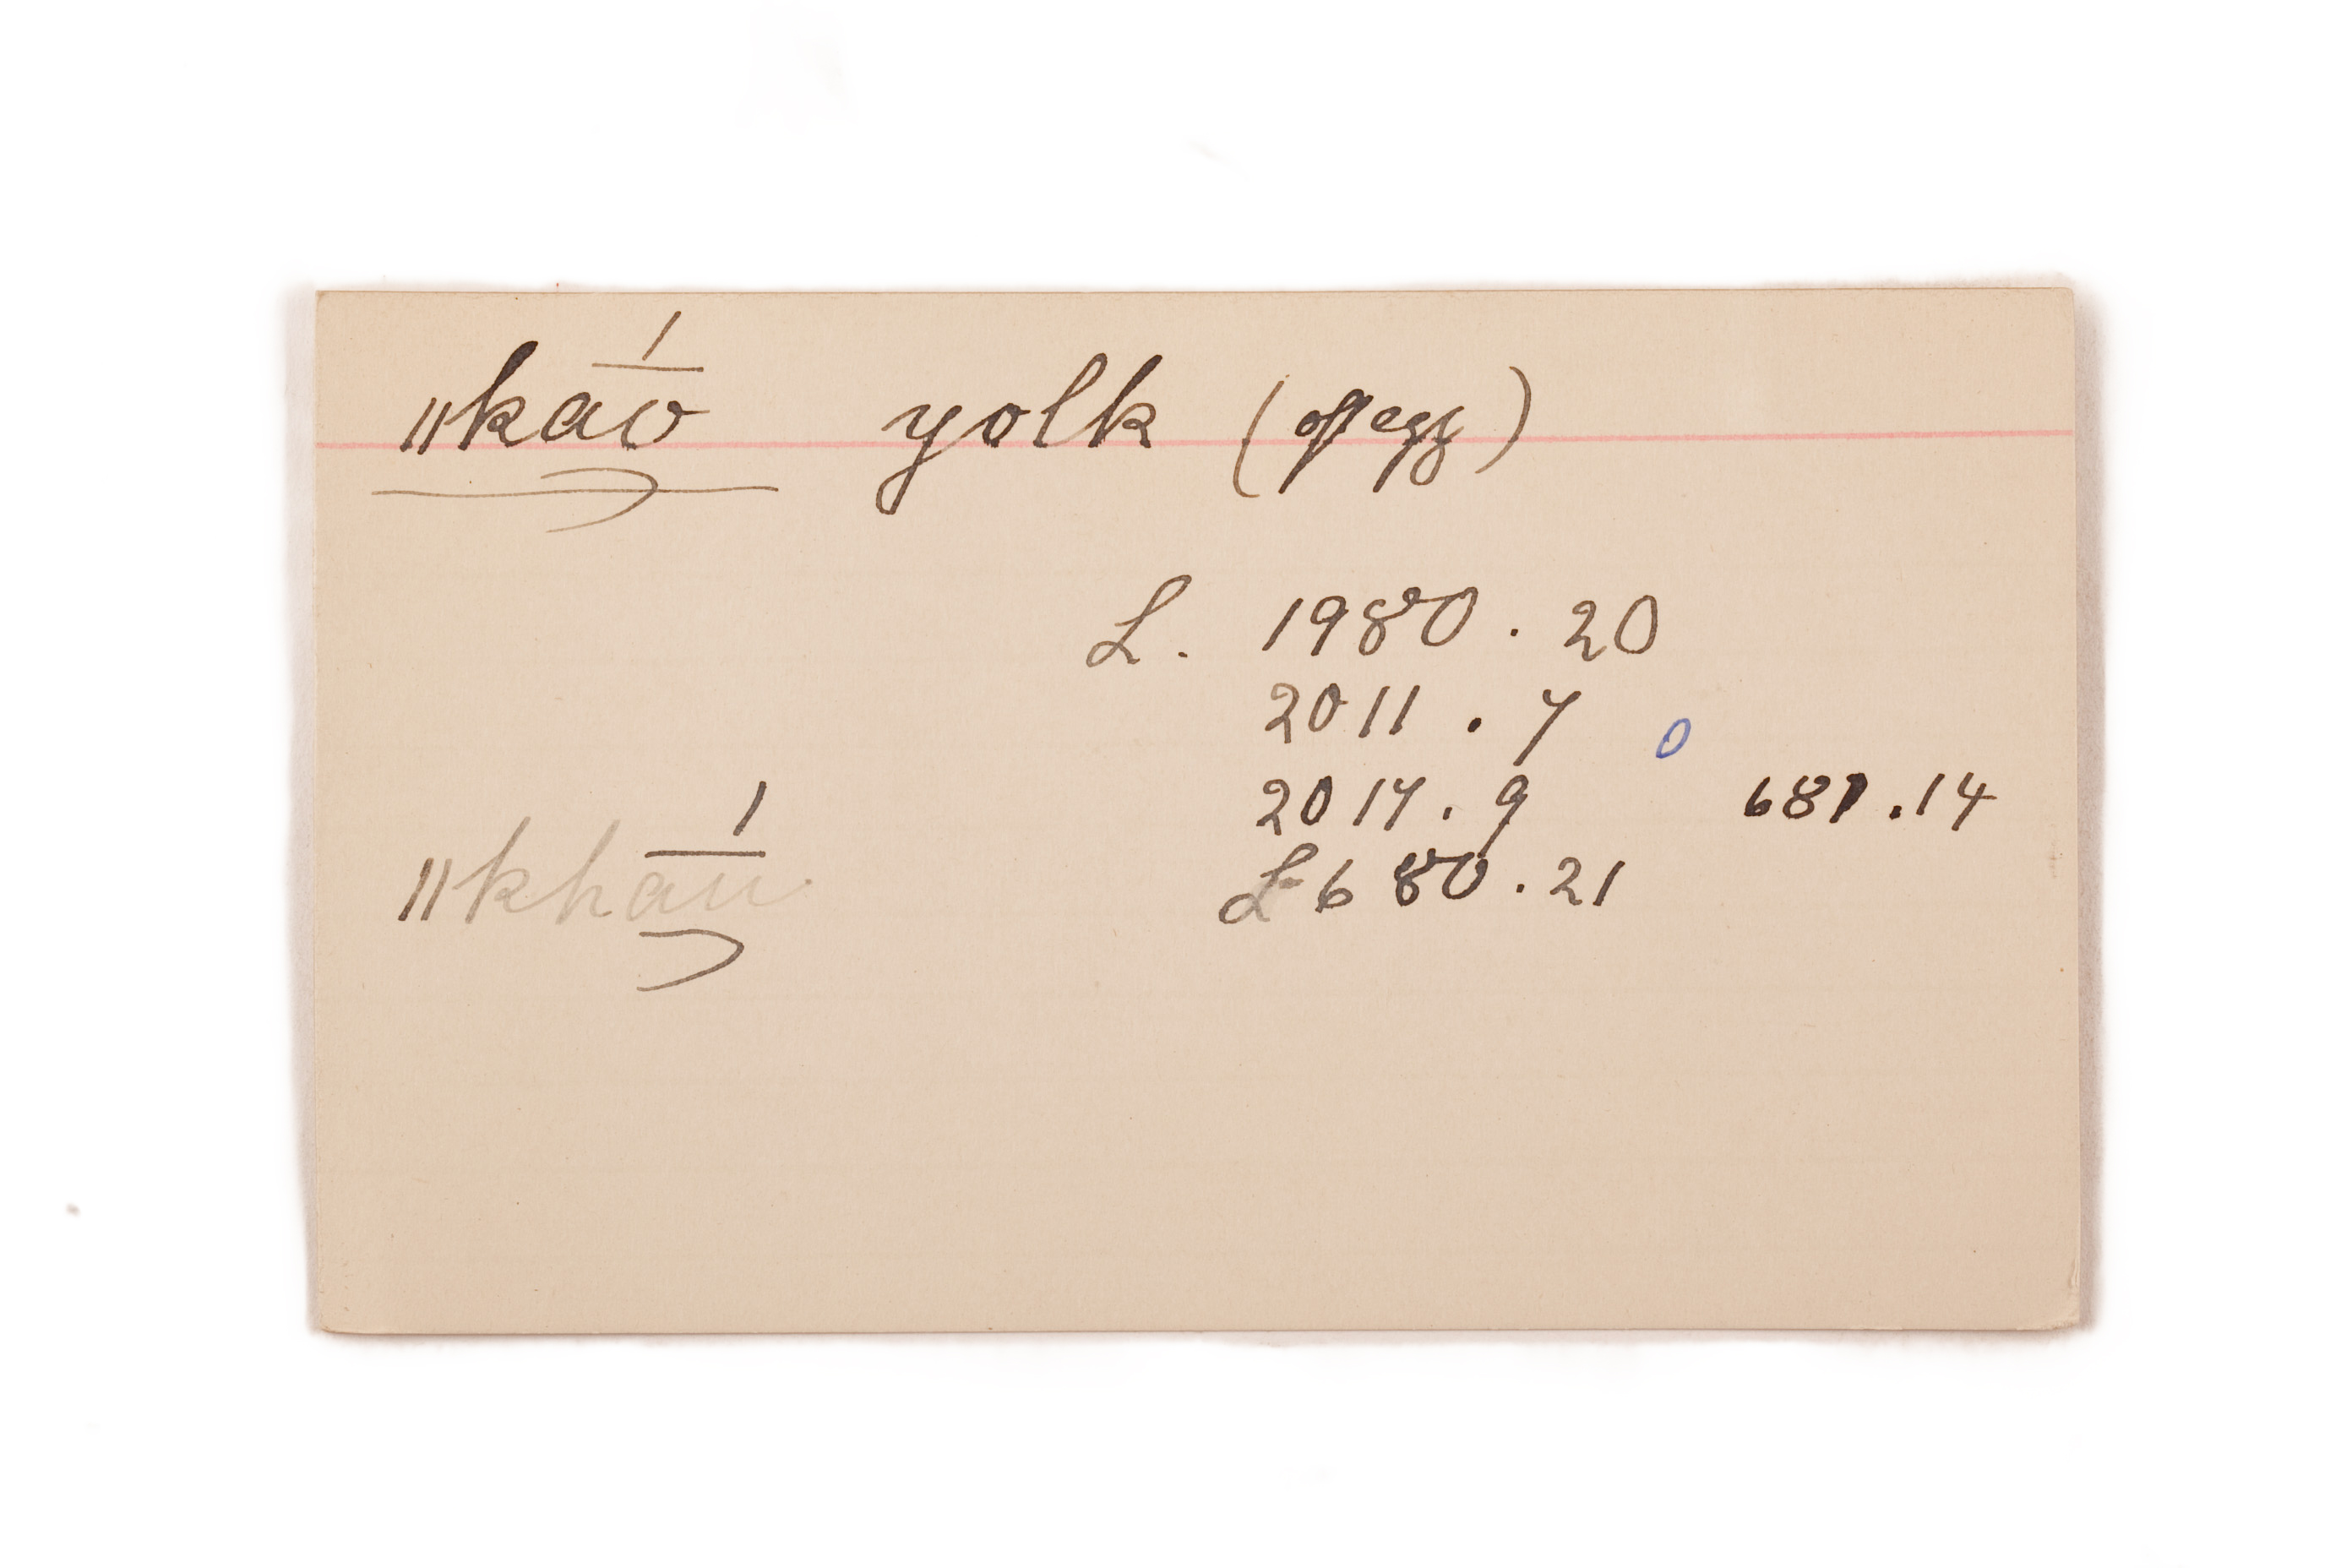 ǁkā́o yolk (of egg)
L. 1980.20
2011.7 0
2017.9 681.14
ǁkhā́u L 680.21